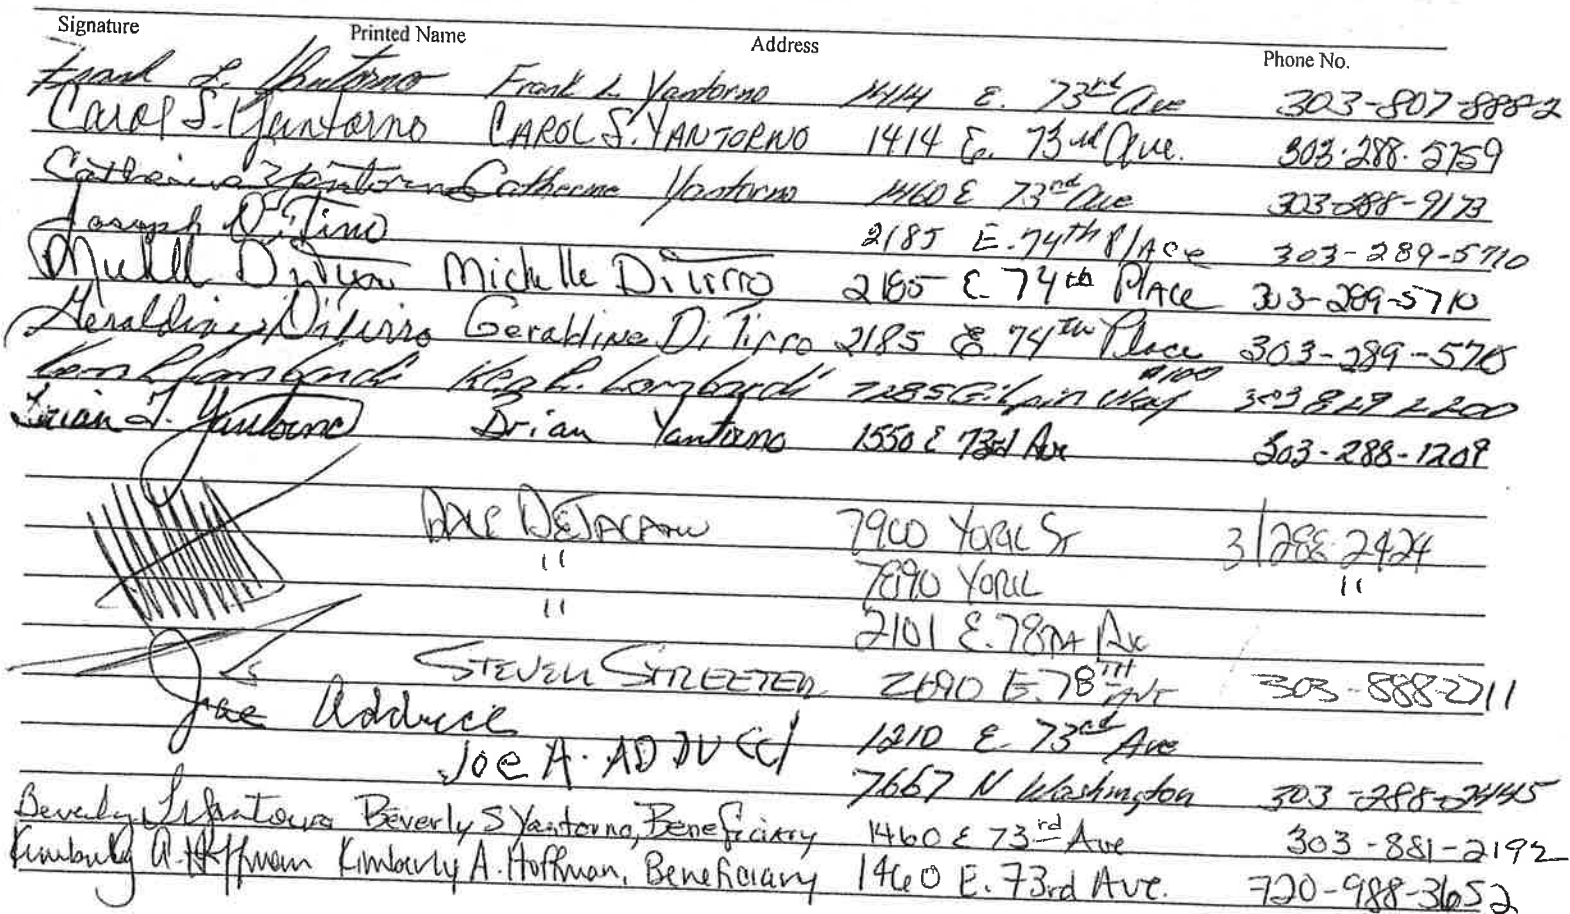 Signature Printed Name Address Phone No.
Frank L. Yantorno Frank L Yantorno 1414 E. 73rd Ave 303-807-8882
Carol S. Yantorno CAROL S. YANTORNO 1414 E. 73rd Ave. 303-288-5759
Catherine Yantorno Catherine Yantorno 1460 E 73rd Ave 303-288-9173
Joseph DiTirro 2185 E. 74th PlAce 303-289-5710
Michelle DiTirro 2185 E. 74th PlAce 303-289-5710
Geraldine DiTirro Geraldine DiTirro 2185 E. 74th Place 303-289-5710
Ken R. Lombardi Ken R. Lombardi 7285 Gilpin Way #100 303 829 2200
Brian T. Yantorno Brian Yantorno 1550 E 73rd Ave 303-288-1209
DALE 7900 YORK St 3/288-2424
" 7890 YORK "
" 2101 E. 78th Ave
STEVEN STREETER 2690 E. 78TH AVE 303-888-2711
Joe Adducci 1210 E. 73rd Ave
Joe A. ADDUCCI 7667 N Washington 303-288-2445
Beverly S Yantorno Beverly S Yantorno, Beneficiary 1460 E 73rd Ave 303-881-2192
Kimberly A. Hoffman Kimberly A. Hoffman, Beneficiary 1460 E. 73rd Ave. 720-988-3652